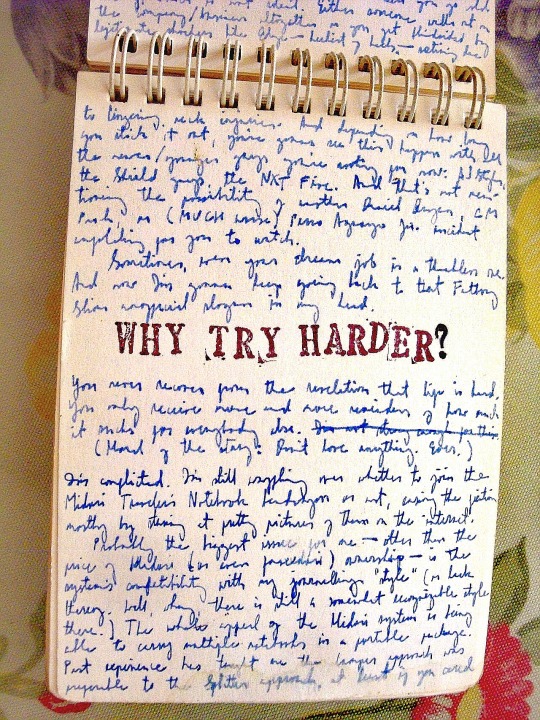 is not ideal. Either someone
the company/business altogether
legitimate
to lingering neck injuries. And depending on how long
you stick it out, you're gonna see this happen with all
the newer/younger guys you're rooting for now: AJ Styles,
the Shield guys, the NXT Five. And that's not men-
tioning the possibility of another Daniel Bryan, CM
Punk or (MUCH worse) Perro Aguayo Jr. incident
unfolding for you to watch.
Sometimes, even your dream job is a thankless one.
And now I'm gonna keep going back to that Fatboy
Slim unofficial slogan in my head.
WHY TRY HARDER?
You never recover from the revelation that life is hard.
You only receive more and more reminders of how much
it sucks for everybody else.
(Moral of the story: Don't love anything. Ever.)
I'm conflicted. I'm still waffling over whether to join the
Midori Traveler's Notebook bandwagon or not, easing the
monthly by staring at pretty pictures of them on the internet.
Probably the biggest issue for me — other than the
price of Midori (or even faux-dori) ownership — is the
system's compatibility with my journalling "style" (or lack
thereof. Well, okay, there is still a somewhat recognizable style
there.) The whole appeal of the Midori system is being
able to carry multiple notebooks in a portable package.
Past experience has taught me the approach was
preferable to the splitter approach, at least if you